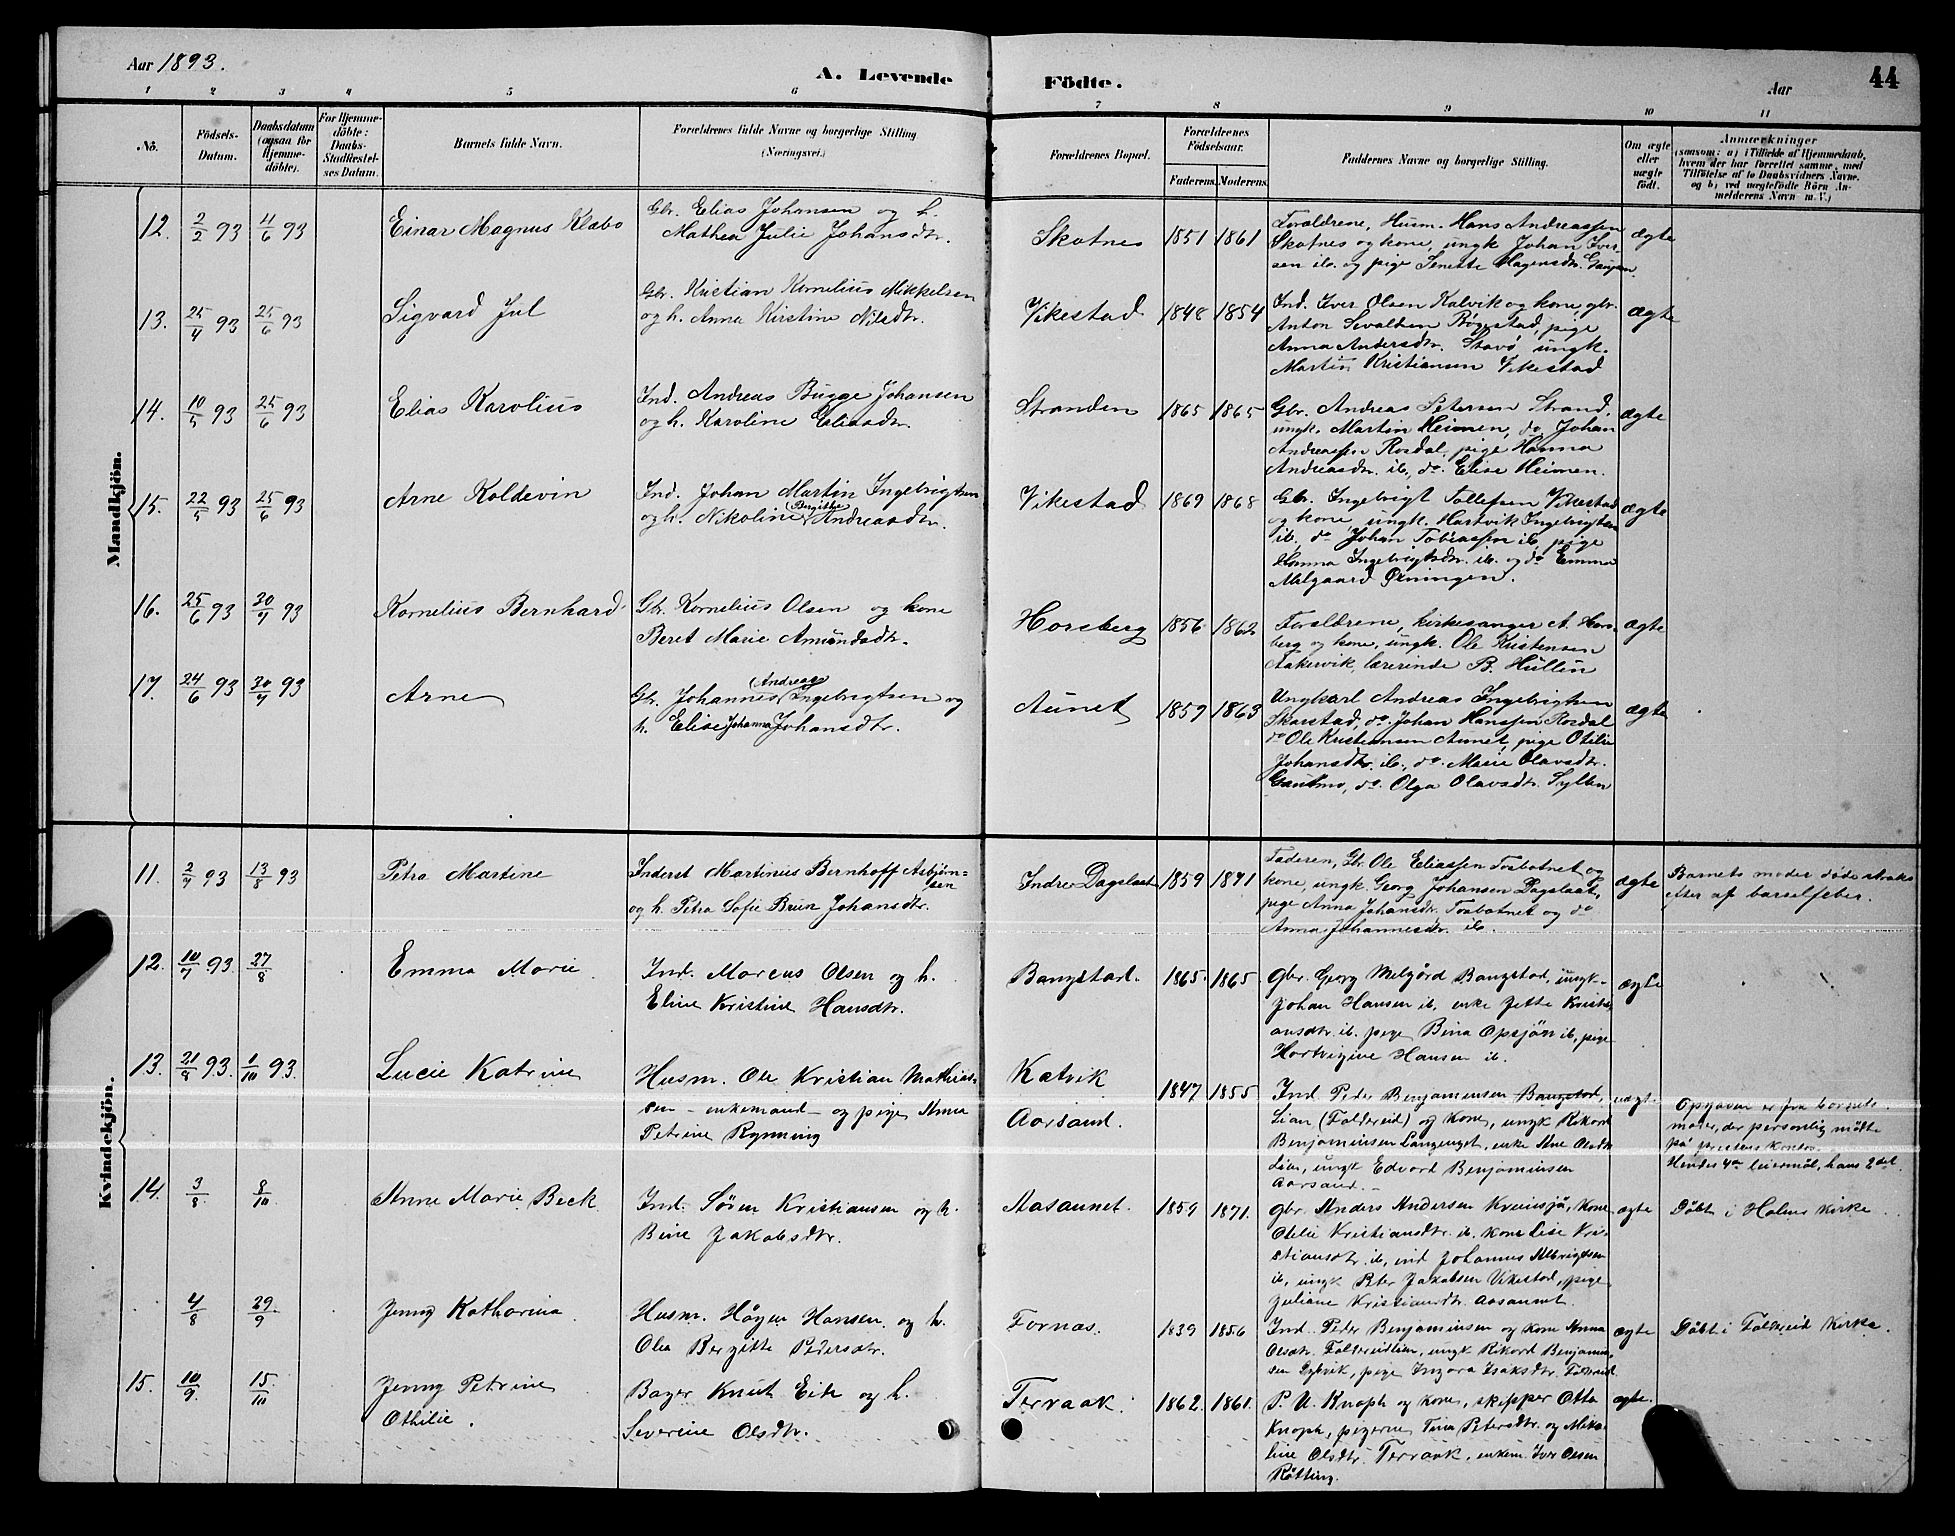 Aar 1893.
A. Levende Födte.
Aar
44
1 2 3 4 5 6 7 8 9 10 11
No.
Födsels-Datum.
Daabsdatum (ogsaa for Hjemmedöbte).
For Hjemmedöbte: Daabs-Stadfæstelses Datum.
Barnets fulde Navn.
Forældrenes fulde Navne og borgerlige Stilling (Næringsvei.)
Forældrenes Bopæl.
Forældrenes Födselsaar.
Faderens. Moderens.
Faddernes Navne og borgerlige Stilling.
Om ægte eller uægte födt.
Anmærkninger (saasom: a) i Tilfælde af Hjemmedaab, hvem der har forrettet samme, med Tilföielse af to Daabsvidners Navne. og b) ved uægtefödte Börn Anmelderens Navn m. V.)
Mandkjön.
12. 2/2 93 4/6 93 Einar Magnus Klæbo
Gbr. Elias Johansen og h.
Mathea Julie Johansdtr.
Skotnes 1851 1861
Forældrene, Husm. Hans Andreassen
Skotnes og kone, ungk. Johan Iver-
sen ib. og pige Senette Hagensdtr.
ægte
13. 25/4 93 25/6 93 Sigvard Jul
Gbr. Kristian Kornelius Mikkelsen
og h. Anna Kirstine Nilsdtr.
Vikestad 1848 1854
Ind. Iver Olsen Kalvik og kone, gbr.
Anton Sevaltsen Bögestad, pige
Anna Andersdtr. Stavö ungk.
Martin Kristiansen Vikestad
ægte
14. 10/5 93 25/6 93 Elias Karolius
Ind. Andreas Bugge Johansen
og h. Karoline Eliasdtr.
Stranden 1865 1865
Gbr. Andreas Petersen Strand,
ungk. Martin Heimen, do Johan
Andreassen Rosdal, pige Hanna
Andreasdtr. ib, do. Elise Heimen.
ægte
15. 22/5 93 25/6 93 Arne Koldevin
Ind. Johan Martin Ingebrigtsen
og h. Nikoline (Bergitte) Andreasdtr.
Vikestad 1869 1868
Gbr. Ingebrigt Tollefsen Vikestad
og kone, ungk. Hartvik Ingebrigtsen
ib. do Johan Tobiassen ib, pige
Hanna Ingebrigtsdtr. ib. og do Emma
Melgaard Ofningen.
ægte
16. 25/6 93 30/7 93 Kornelius Bernhard
Gbr. Kornelius Olsen og kone
Beret Marie Amundsdtr.
Horsberg 1856 1862
Forældrene, kirkesanger A. Hors-
berg og kone, ungk. Ole Kristensen
Aakervik, lærerinde B. Hullin
ægte
17. 24/6 93 30/7 93 Arne
Gbr. Johannes (Andreas) Ingebrigtsen og
h. Elise Johanna Johansdtr.
Aunet 1859 1863
Ungkarl Andreas Ingebrigtsen
Skarstad, do. Johan Hanssen Rosdal
do Ole Kristiansen Aunet, pige Otilie
Johansdtr. ib., do. Marie Olavsdtr.
Gautmo, do. Olga Olavsdtr. Sylten
ægte
Kvindekjön.
11. 2/7 93 13/8 93 Petra Martine
Inderst Martinus Bernhoff Asbjörn-
sen
og h. Petra Sofie Brun Johansdtr.
Indre Dagslaat 1859 1871
Faderen, Gbr. Ole Eliassen Tosbotnet og
kone, ungk. Georg Johansen Dagslaat,
pige Anna Johansdtr. Tosbotnet og do
Anna Johannesdtr. ib.
ægte
Barnets moder döde straks
efter af barselfeber.
12. 10/7 93 27/8 Emma Marie
Ind. Marcus Olsen og h.
Eline Kristine Hansdtr.
Bangstad. 1865. 1865
gbr. Georg Melgård Bangstad, ungk.
Johan Hansen ib, enke Jette Kristi-
ansdtr. ib. pige Bina Opsjön ib, pige
Hartvigine Hansen ib.
ægte
13. 21/8 93. 1/10 93. Lucie Katrine
Husm. Ole Kristian Mathias-
sen - enkemand - og pige Anna
Petrine Rynning
Katvik
Aarsand. 1847 1855
Ind. Peder Benjaminsen Bangstad,
Lian (Foldereid) og kone, ungk Rikard
Benjaminsen Langenget, enke Ane Olsdtr.
Lian, ungk Edvard Benjaminsen
Aarsand.
uægt.
Opgaven er fra barnets
moder, der personlig mödte
på prestens kontor.
Hendes 4de leiermål, hans 2det.
14. 3/8 8/10 Anne Marie Beck
Ind. Sören Kristiansen og h.
Bine Jakobsdtr.
Aasaunet. 1859 1871.
gbr. Anders Andersen Kvinsjö, kone
Otilie Kristiansdtr. ib. kone Lise Kri-
stiansdtr. ib, ind Johannes Albrigtsen
ib, ungk Peter Jakobsen Vikestad, pige
Juliane Kristiansdtr. Aasaunet.
ægte
Döbt i Holms kirke
4/8 29/9 Jenny Katharina
Husm. Hågen Hansen og h.
Olea Bergitte Pedersdtr.
Fornæs. 1839 1856
Ind. Peder Benjaminsen og kone Anna
Olsdtr. Foldereidlien, ungk Rikard Benjamin-
sen Dykvik, pige Ingora Isaksdtr. Foldereid
ægte
Döbt i Foldereid kirke.
15. 10/9 15/10 Jenny Petrine
Othilie.
Bager Knut Eik og h.
Severine Olsdtr.
Terraak. 1862. 1861.
P. U. Knoph og kone, skipper Otto
Knoph, pigerne Tina Petersdtr. og Mika-
line Olsdtr. Terraak, enkem. Iver Olsen
Rötting.
ægte.